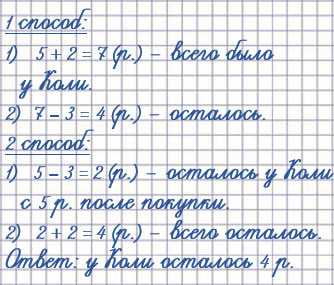 1 способ:
1) 5 + 2 = 7 (р.) – всего было
у Коли.
2) 7 – 3 = 4 (р.) – осталось.
2 способ:
1) 5 – 3 = 2 (р.) – осталось у Коли
с 5 р. после покупки.
2) 2 + 2 = 4 (р.) – всего осталось.
Ответ: у Коли осталось 4 р.